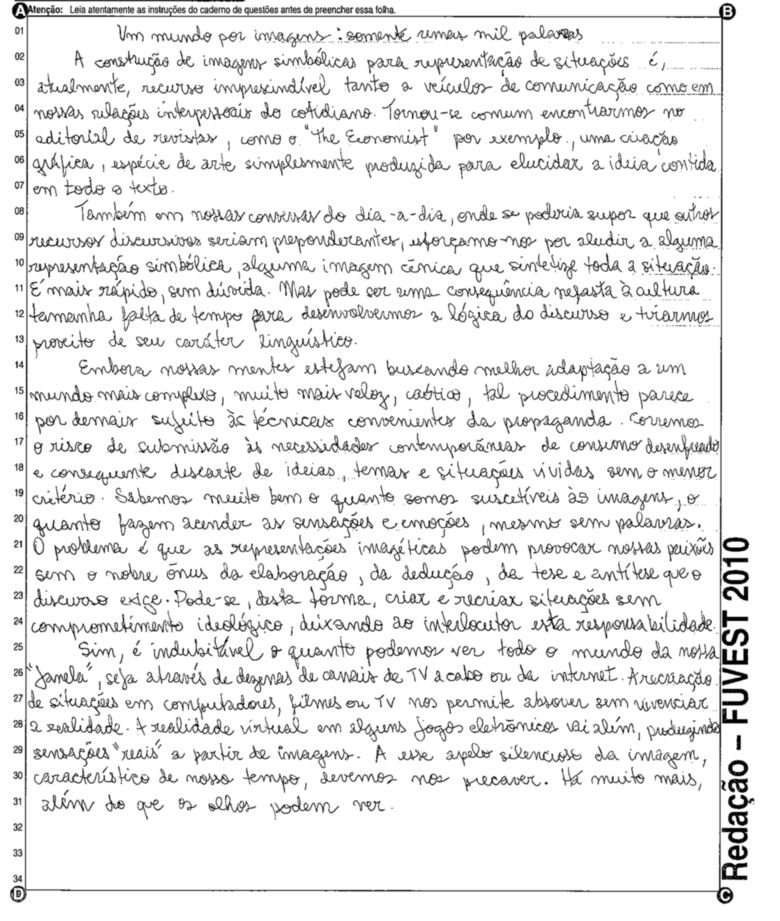 Atenção: Leia atentamente as instruções do caderno de questões antes de preencher essa folha.
A
B
01 Um mundo por imagens: somente umas mil palavras
02 A construção de imagens simbólicas para representação de situações é,
03 atualmente, recurso imprescindível tanto a veículos de comunicação como em
04 nossas relações interpessoais do cotidiano. Tornou-se comum encontrarmos no
05 editorial de revistas, como o "The Economist" por exemplo, uma criação
06 gráfica, espécie de arte simplesmente produzida para elucidar a ideia contida
07 em todo o texto.
08 Também em nossas conversas do dia-a-dia, onde se poderia supor que outros
09 recursos discursivos seriam preponderantes, esforçamo-nos por aludir a alguma
10 representação simbólica, alguma imagem cênica que sintetize toda a situação.
11 É mais rápido, sem dúvida. Mas pode ser uma consequência nefasta à cultura
12 tamanha falta de tempo para desenvolvermos a lógica do discurso e tirarmos
13 proveito de seu caráter linguístico.
14 Embora nossas mentes estejam buscando melhor adaptação a um
15 mundo mais complexo, muito mais veloz, caótico, tal procedimento parece
16 por demais sujeito às técnicas convenientes da propaganda. Corremos
17 o risco de submissão às necessidades contemporâneas de consumo desenfreado
18 e consequente descarte de ideias, temas e situações vividas sem o menor
19 critério. Sabemos muito bem o quanto somos suscetíveis às imagens, o
20 quanto fazem acender as sensações e emoções, mesmo sem palavras.
21 O problema é que as representações imagéticas podem provocar nossas paixões
22 sem o nobre ônus da elaboração, da dedução, da tese e antítese que o
23 discurso exige. Pode-se, desta forma, criar e recriar situações sem
24 comprometimento ideológico, deixando ao interlocutor esta responsabilidade.
25 Sim, é indubitável o quanto podemos ver todo o mundo da nossa
26 "janela", seja através de dezenas de canais de TV a cabo ou da internet. A recriação
27 de situações em computadores, filmes ou TV nos permite absorver sem vivenciar
28 a realidade. A realidade virtual em alguns jogos eletrônicos vai além, produzindo
29 sensações "reais" a partir de imagens. A esse apelo silencioso da imagem,
30 característico de nosso tempo, devemos nos precaver. Há muito mais,
31 além do que os olhos podem ver.
32
33
34
D
C
Redação – FUVEST 2010